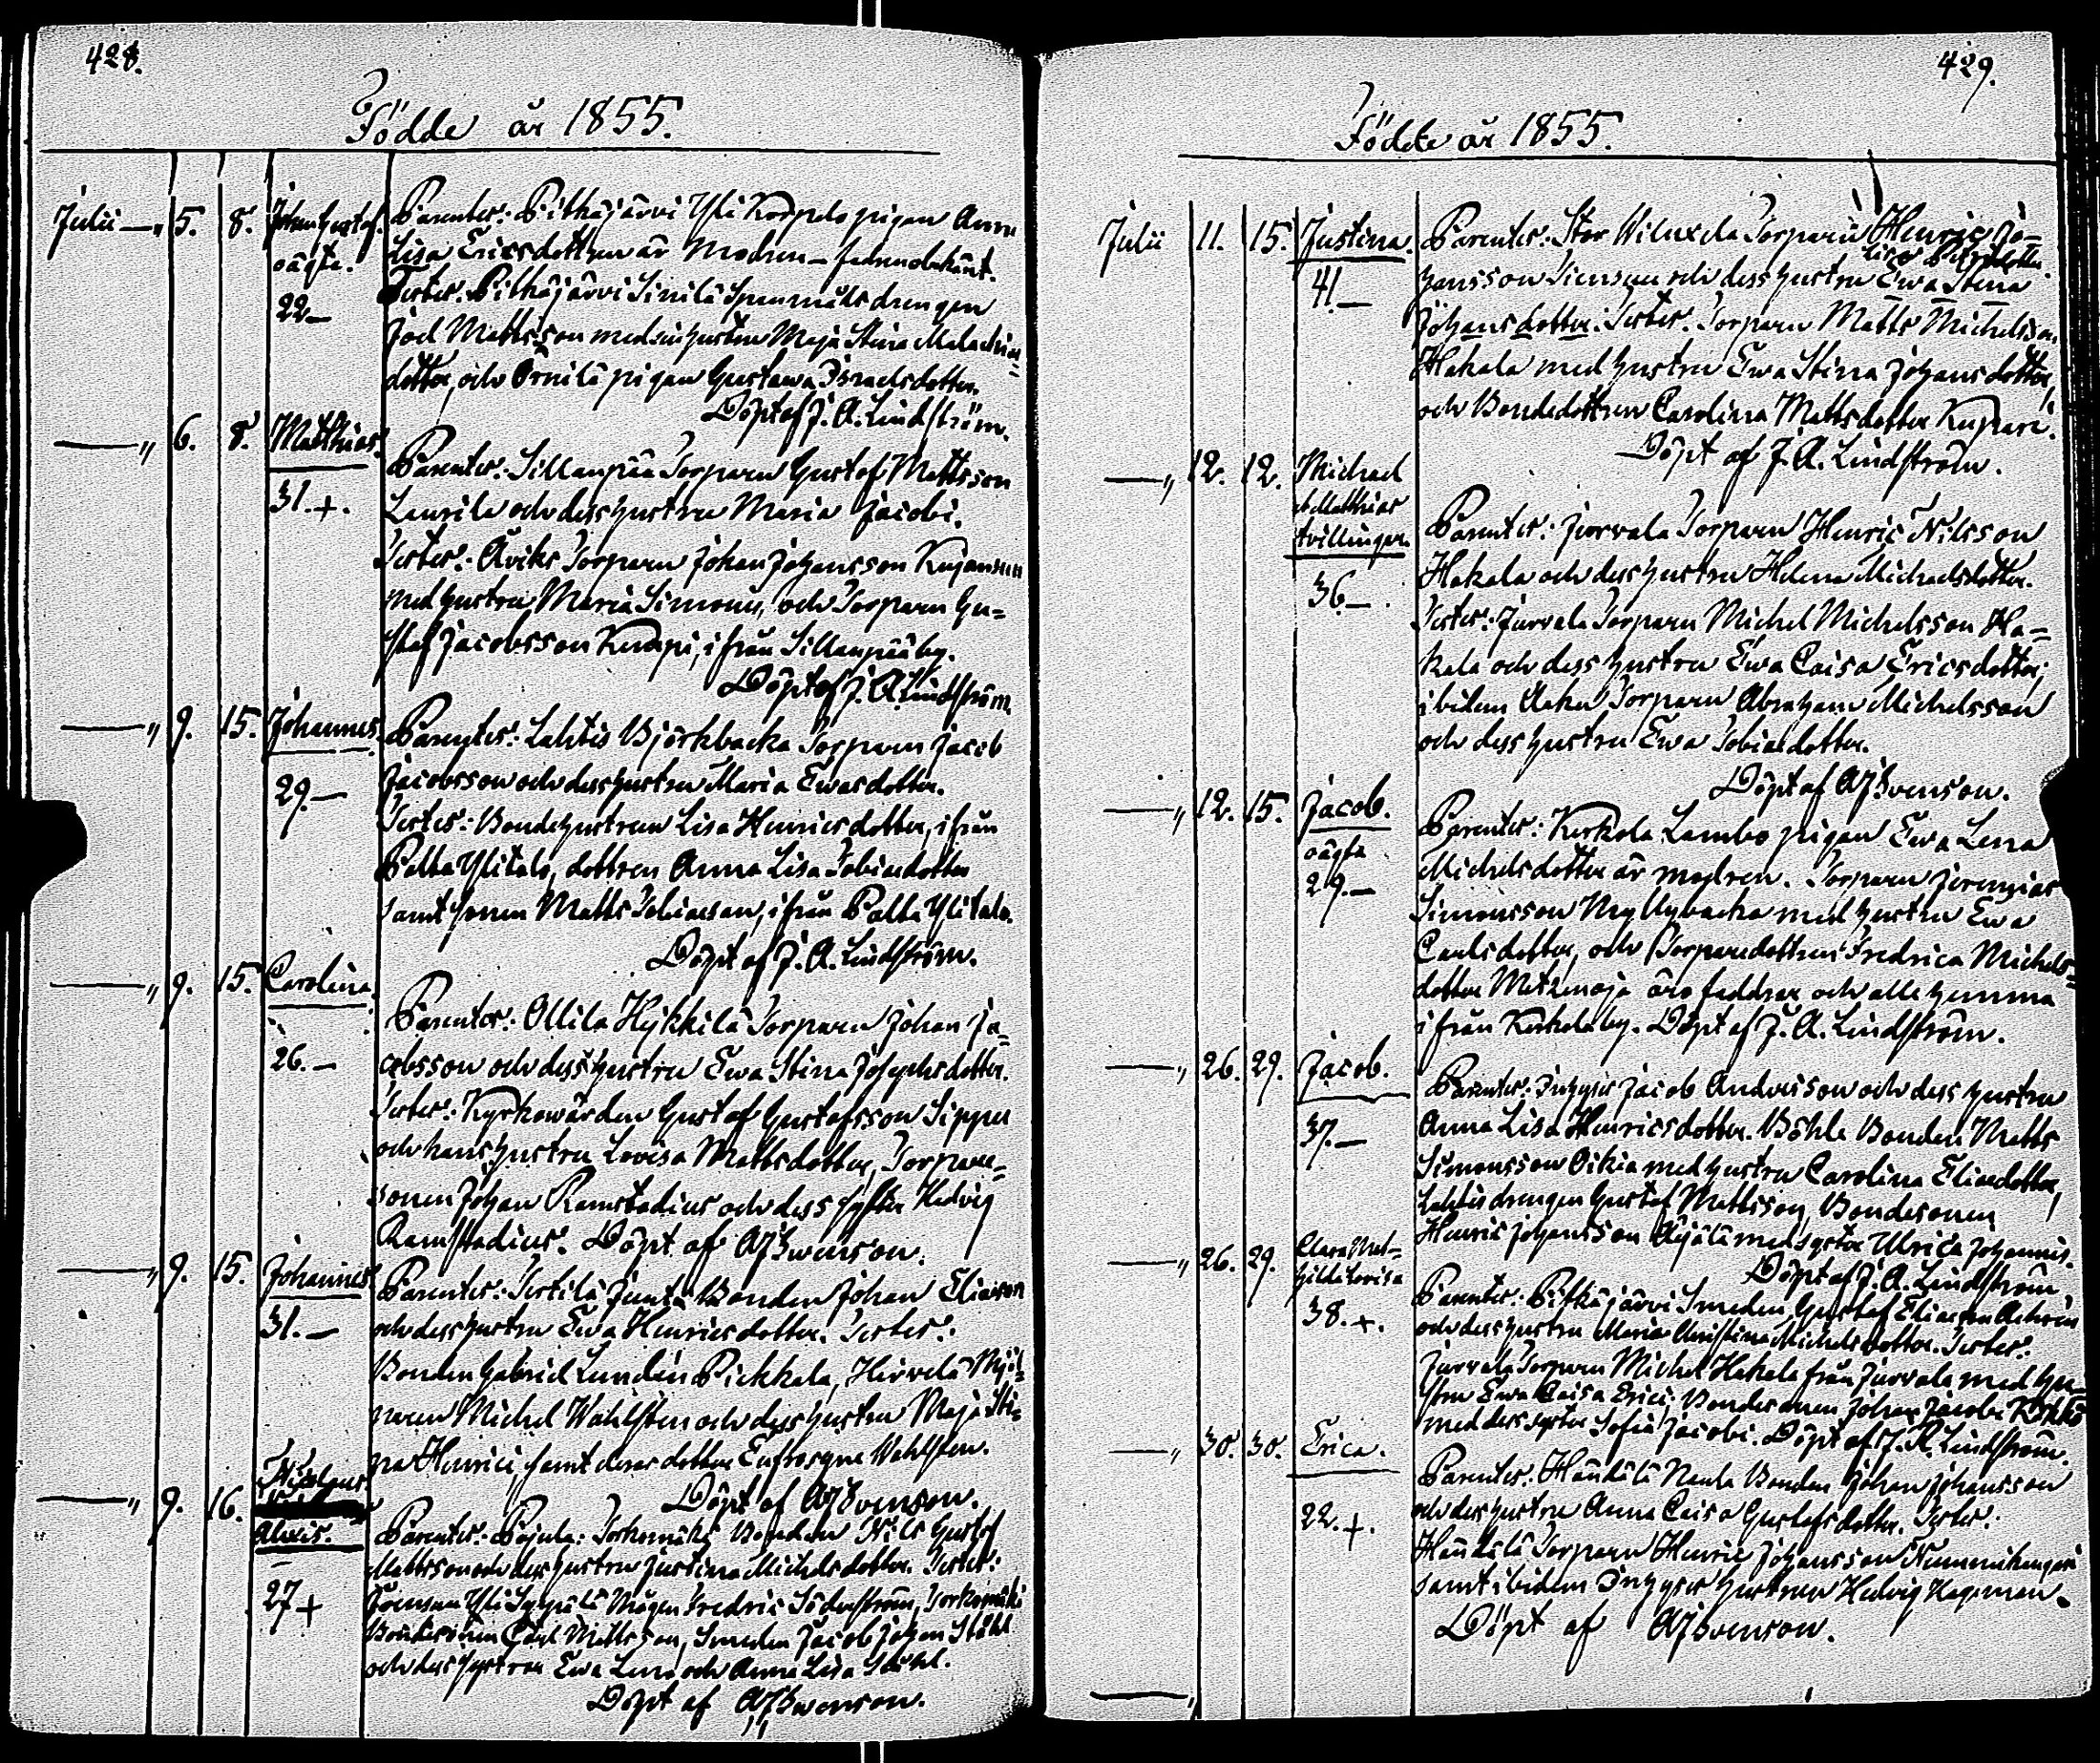 428.
Födde år 1855.
Julii — „ 5. 8. Johan Gustaf. Parenter: Pitkäjärvi Yli Korpelo pigan Anna
oägta. Lisa Ericsdotter är modren — fadren obekant.
22 — Testes: Pitkäjärvi Sinilä drengen
Joel Mattsson med sin hustru Maja Stina
dotter, och Örnilä pigan Gustawa Israelsdotter.
Döpt af J. A. Lindström.
— „ 6. 8. Matthias. Parenter: Sillanpää Torparen Gustaf Mattsson
31. +. Laurila och dess hustru Maria Jacobi.
Testes: Torparen Johan Johansson Kujansuu
med hustru Maria Simons, och Torparen Gu=
staf Jacobsson Kemppi, ifrån Sillanpää by.
Döpt af J. A. Lindström.
— „ 9. 15. Johannes. Parenter: Lahtis Björkbacka Torparen Jacob
Jacobsson och dess hustru Maria Ewasdotter.
29. — Testes: Bondehustrun Lisa Henricsdotter, ifrån
Palta Ylitalo, dottren Anna Lisa Tobiædotter
samt sonen Matts Tobiæson, ifrån Palta Ylitalo.
Döpt af J. A. Lindström.
— „ 9. 15. Carolina. Parenter: Ollila Hykkilä Torparen Johan Ja=
26. — cobsson och dess hustru Ewa Stina Josephsdotter.
Testes: Kyrkowärden Gustaf Gustafsson Sippu
och hans hustru Lovisa Mattsdotter, Torpare=
sonen Johan Ramstadius och dess syster Hedvig
Ramstadius. Döpt af AJSwenson.
— „ 9. 15. Johannes. Parenter: Terttilä Junta Bonden Johan Eliæson
31. — och dess hustru Ewa Henricsdotter. Testes:
Bonden Gabriel Lundén Pickkala, Hirvelä Mjöl=
naren Michel Wahlsten och dess hustru Maja Sti=
na Henrici, samt deras dotter Eufrosyne Wahlsten.
Döpt af AJSvenson.
— „ 9. 16. Nicolaus
Alexis. Parenter: Pajula: Torkomäki Bonden Nils Gustaf
Mattsson och dess hustru Justina Michelsdotter. Testes:
27 + Forssan Yli Sepälä Mågen Fredric Söderström, Torkomäki
Bondesonen Carl Mattsson, Smeden Jacob Johan Ståhl
och dess systrar Ewa Lena och Anna Lisa Ståhl.
Döpt af AJSwenson.
429.
Födde år 1855.
Julii 11. 15. Justina. Parenter: Stor Wiluxela Torparen Henric Jo=
Lisa
41 — hansson och dess hustru Ewa Stina
Johansdotter. Testes: Torparen Matts Michelsson
Hakala med hustru Ewa Stina Johansdotter,
och Bondedottren Carolina Mattsdotter Kupari.
Döpt af J. A. Lindström.
— „ 12. 12. Michael
et Matthias
tvillingar. Parenter: Jurvala Torparen Henric Nilsson
36. — Hakala och dess hustru Helena Michaelsdotter.
Testes: Jurvala Torparen Michel Michelsson Ha=
kala och dess hustru Ewa Caisa Ericsdotter;
ibidem Torparen Abraham Michelsson
och dess hustru Ewa Tobiædotter.
Döpt af AJSvenson.
— „ 12. 15. Jacob. Parenter: Kerkola Lambo pigan Ewa Lena
oägta Michelsdotter är modren. Torparen Jeremias
29. — Simonsson Myllybacka med hustru Ewa
Carlsdotter, och Torparedottren Fredrica Michels=
dotter Metzenoja äro faddrar och alla hemma
ifrån Kerkola by. Döpt af J. A. Lindström.
— „ 26. 29. Jacob. Parenter: Inhyses Jacob Andersson och dess hustru
37. — Anna Lisa Henricsdotter. Böhle Bonden Matts
Simonsson Oikia med hustru Carolina Eliædotter,
Lahtis drengen Gustaf Mattsson, Bondesonen
Henric Johansson Äijälä med syster Ulrica Johannis.
Döpt af J. A. Lindström.
— „ 26. 29. Clara Mat=
hilda Lovisa Parenter: Pitkäjärvi Smeden Gustaf Eliæson
38. +. och dess hustru Maria Christina Michelsdotter. Testes:
Jurvala Torparen Michel Hakala från Jurvala med hu=
stru Ewa Caisa Erici, Bondesonen Johan Jacobi
med dess syster Sofia Jacobi. Döpt af J. A. Lindström.
— „ 30. 30. Erica. Parenter: Häntälä Nenla Bonden Johan Johansson
och dess hustru Anna Caisa Gustafsdotter. Testes:
22. +. Häntälä Torparen Henric Johansson
samt ibidem Inhyses hustrun Hedvig Hageman.
Döpt af AJSvenson.
— „